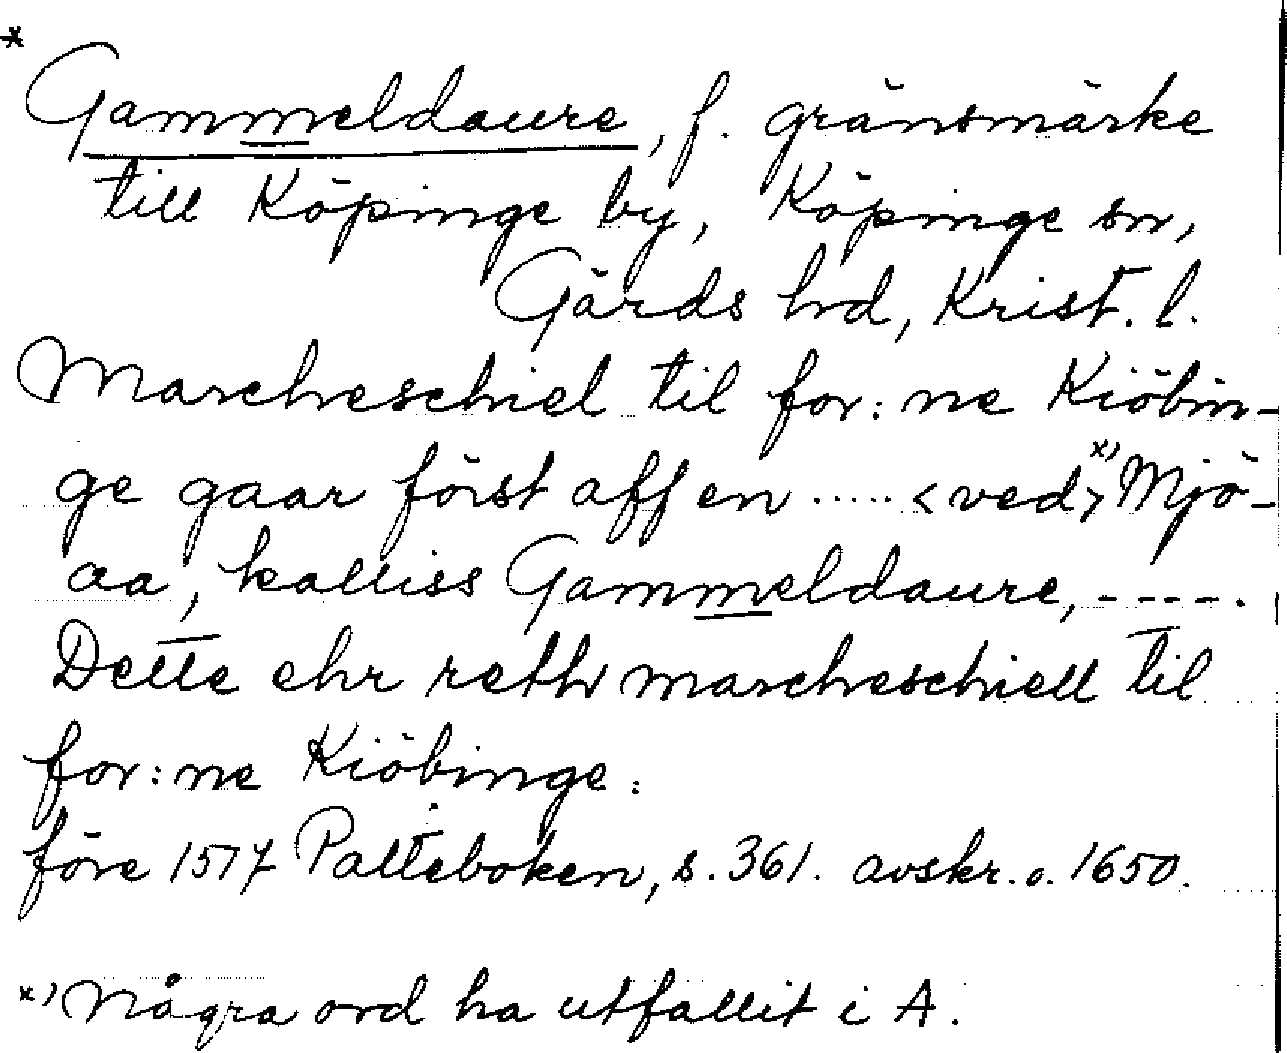 *
Gammeldaure, f. gränsmärke
till Köpinge by, Köpinge sn,
Gärds hd, Krist. l.
Marcheschiel til for: ne Kiöbin-
ge gaar först aff en ..... <ved>*) Mjö-
aa, kalliss Gammeldaure, ----.
Dette ehr reth marcheschiell til
for: ne Kiöbinge:
före 1517 Palteboken, s. 361. avskr. o. 1650.
*) Några ord ha utfallit i A.